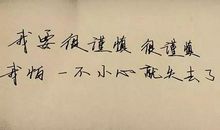 我要很谨慎 很谨慎
我怕 一不小心就失去了